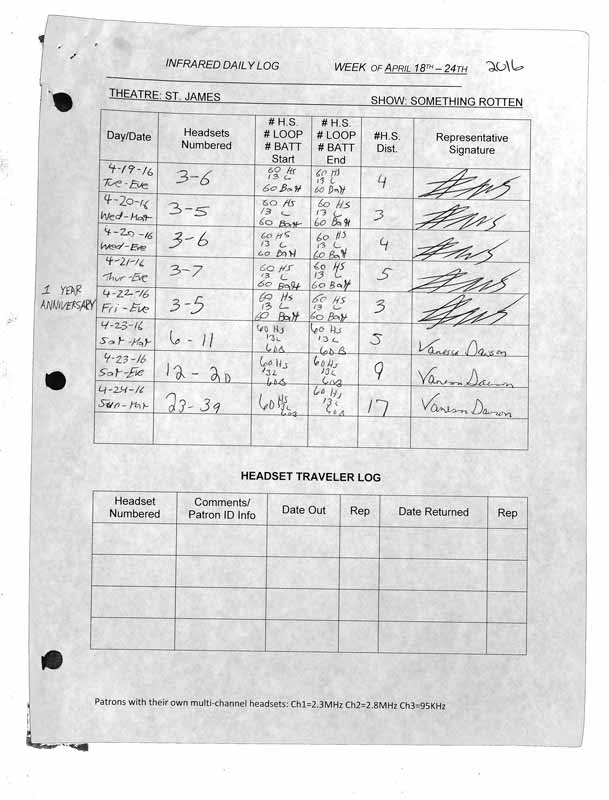 INFRARED DAILY LOG WEEK OF APRIL 18TH – 24TH 2016
THEATRE: ST. JAMES
SHOW: SOMETHING ROTTEN
Day/Date Headsets Numbered # H.S. # LOOP # BATT Start # H.S. # LOOP # BATT End #H.S. Dist. Representative Signature
4-19-16 Tue-Eve 3-6 60 HS 13 L 60 Batt 60 HS 13 L 60 Batt 4
4-20-16 Wed-Mat 3-5 60 HS 13 L 60 Batt 60 HS 13 L 60 Batt 3
4-20-16 Wed-Eve 3-6 60 HS 13 L 60 Batt 60 HS 13 L 60 Batt 4
4-21-16 Thur-Eve 3-7 60 HS 13 L 60 Batt 60 HS 13 L 60 Batt 5
1 YEAR ANNIVERSARY 4-22-16 Fri-Eve 3-5 60 HS 13 L 60 Batt 60 HS 13 L 60 Batt 3
4-23-16 Sat-Mat 6-11 60 Hs 13L 60B 60 Hs 13L 60B 5 Vanessa Dawson
4-23-16 Sat-Eve 12-20 60 Hs 13L 60B 60 Hs 13L 60B 9 Vanessa Dawson
4-24-16 Sun-Mat 23-39 60 Hs 13L 60B 60 Hs 13L 60B 17 Vanessa Dawson
HEADSET TRAVELER LOG
Headset Numbered Comments/ Patron ID Info Date Out Rep Date Returned Rep
Patrons with their own multi-channel headsets: Ch1=2.3MHz Ch2=2.8MHz Ch3=95KHz